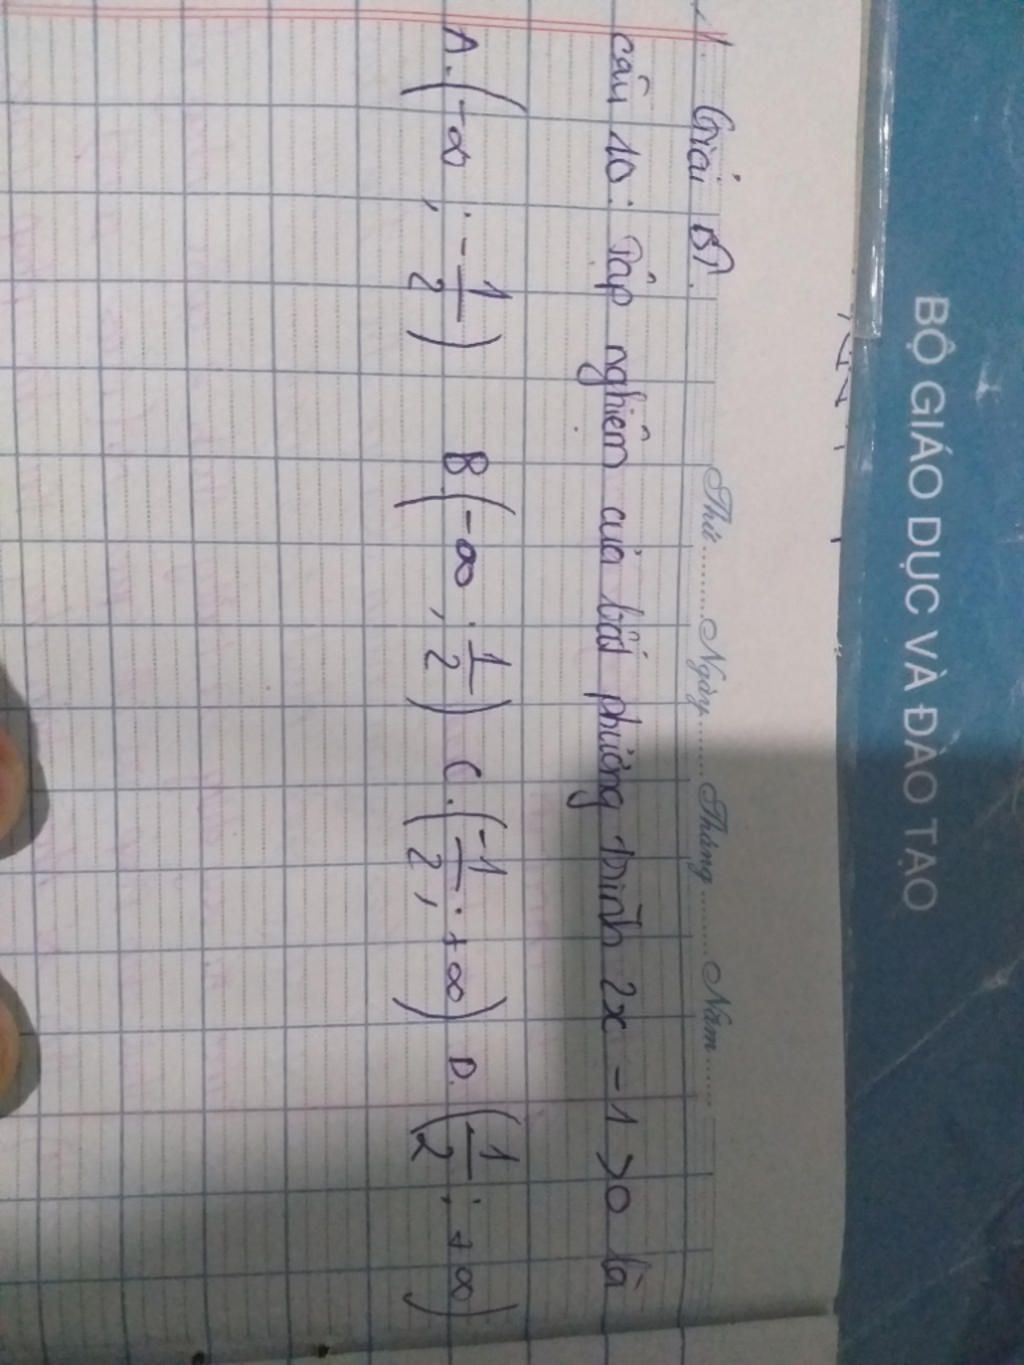 BỘ GIÁO DỤC VÀ ĐÀO TẠO
Thứ ........ Ngày ........ Tháng ........ Năm ........
1. Giải BT.
câu 10: Tập nghiệm của bất phương trình 2x - 1 > 0 là
A. (-∞ ; -1/2) B. (-∞ ; 1/2) C. (-1/2 ; +∞) D. (1/2 ; +∞)